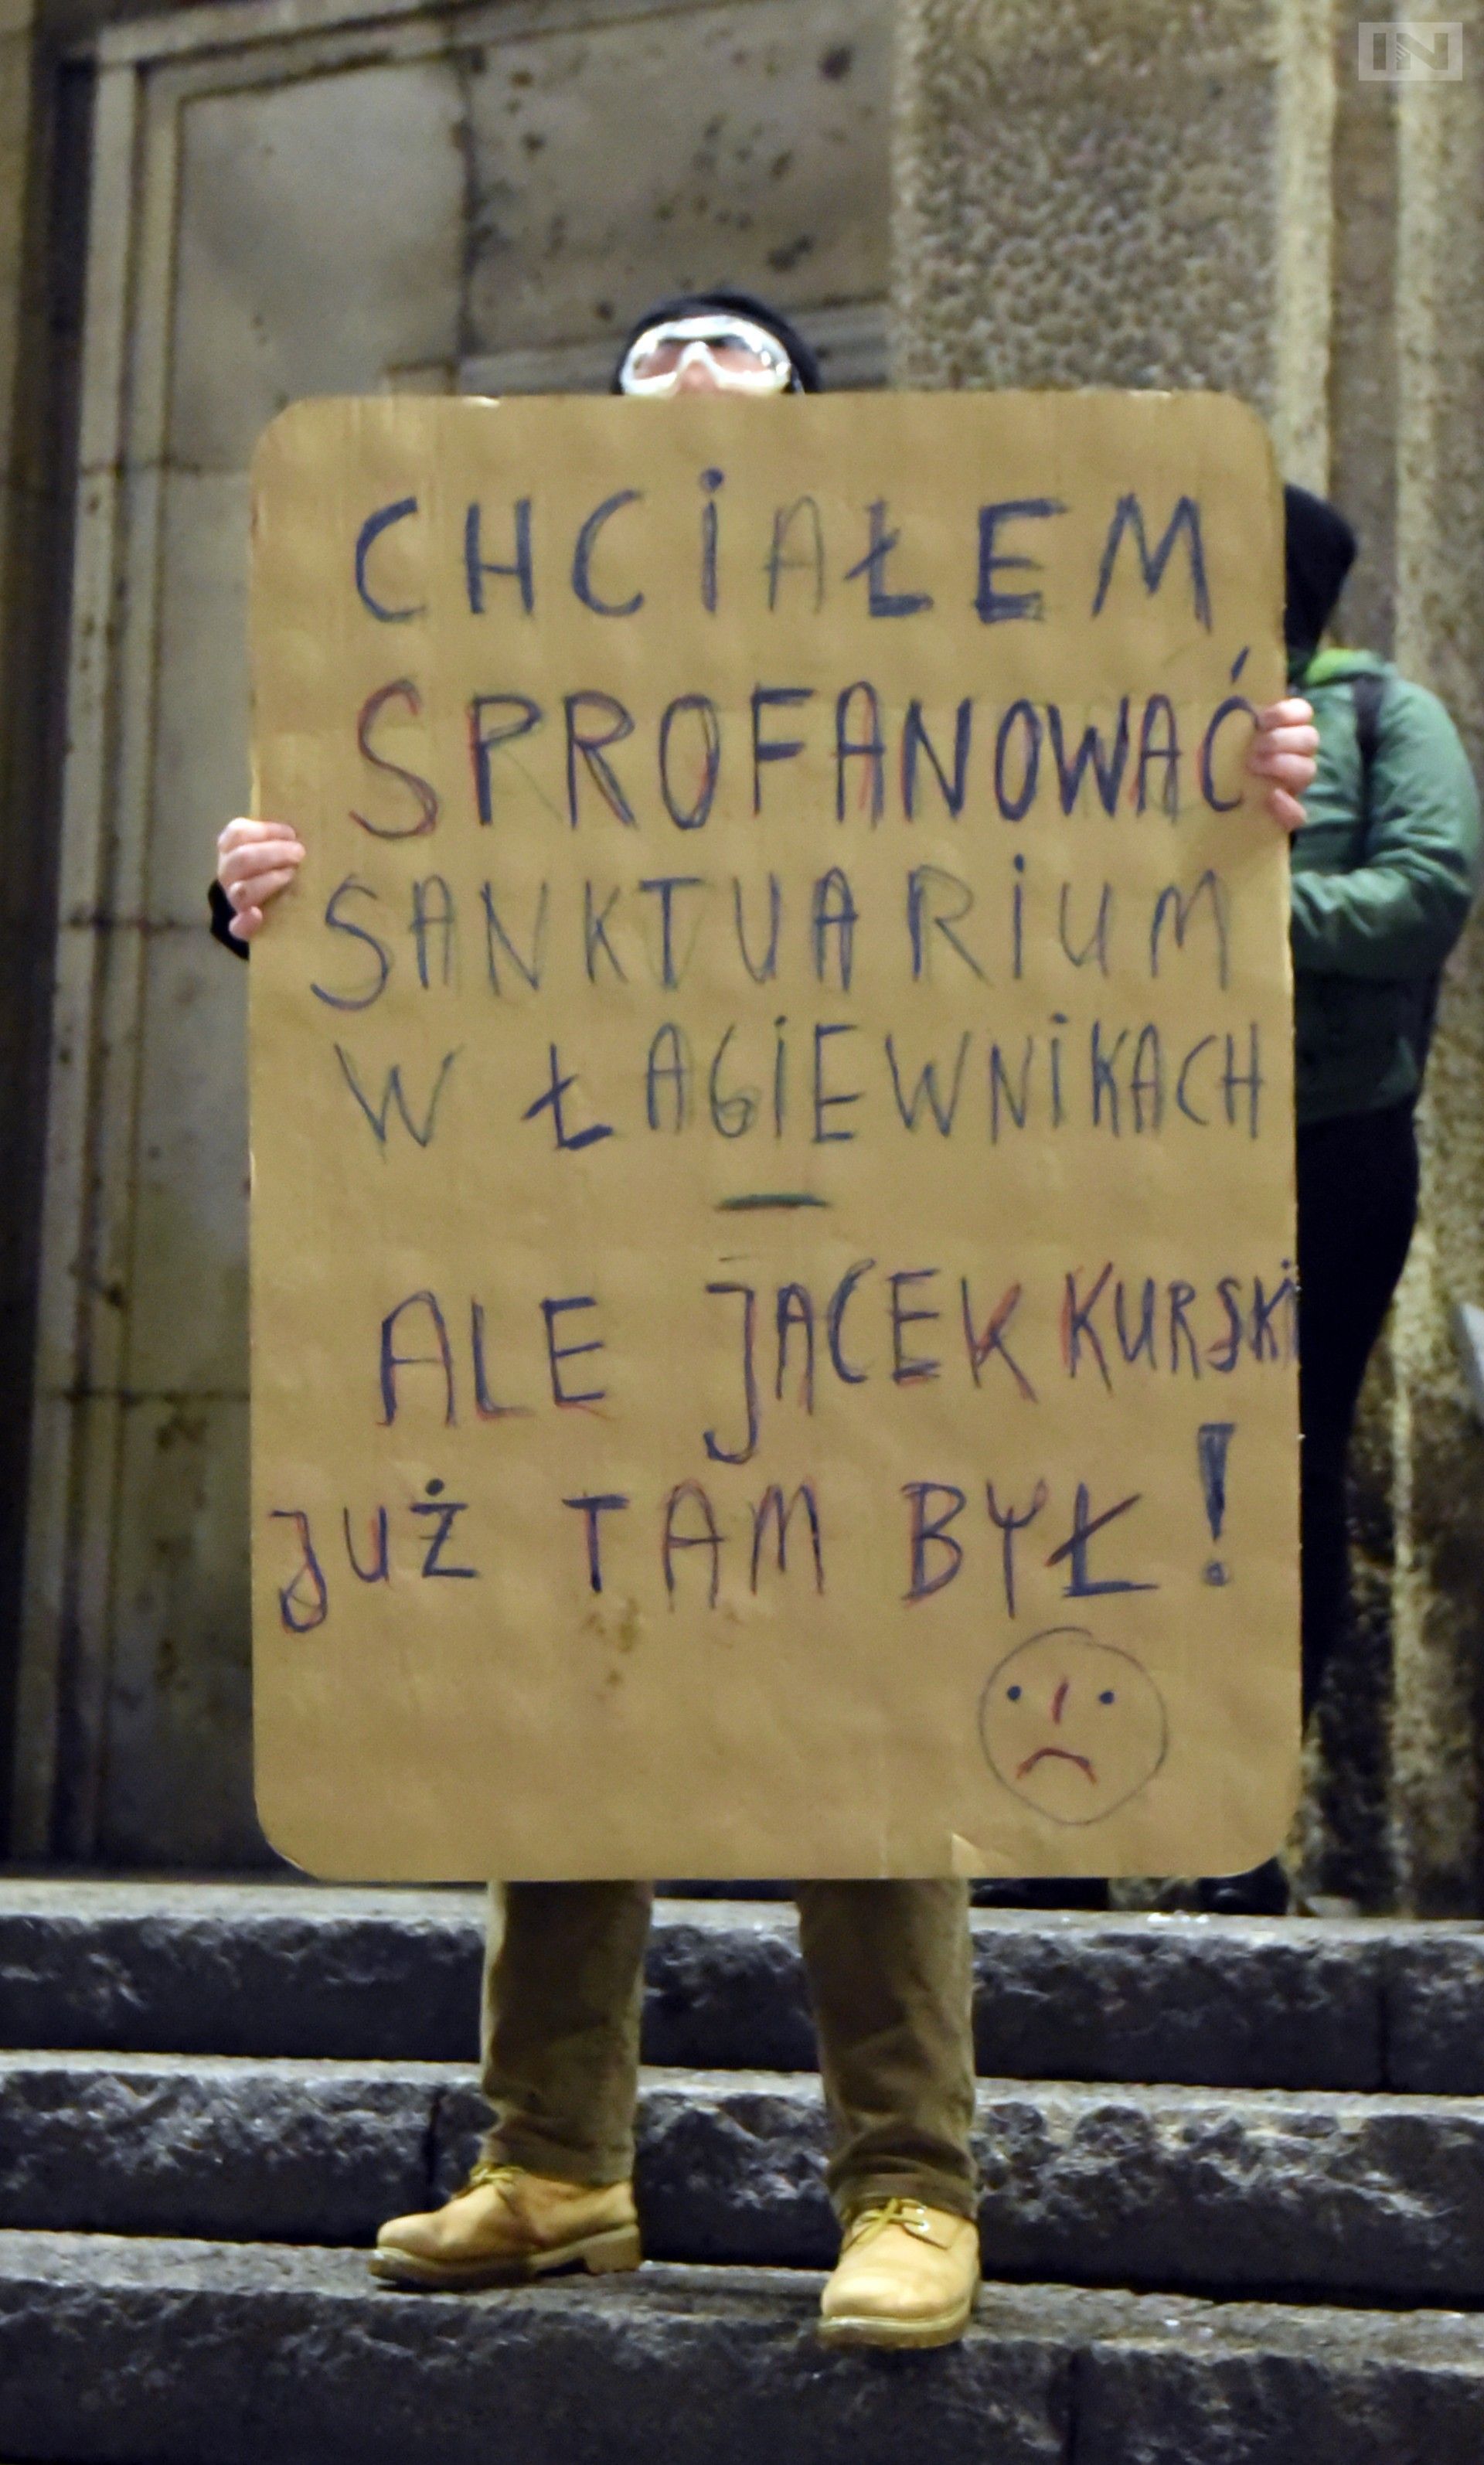 IN
CHCIAŁEM
SPROFANOWAĆ
SANKTUARIUM
W ŁAGIEWNIKACH
—
ALE JACEK KURSKI
JUŻ TAM BYŁ!